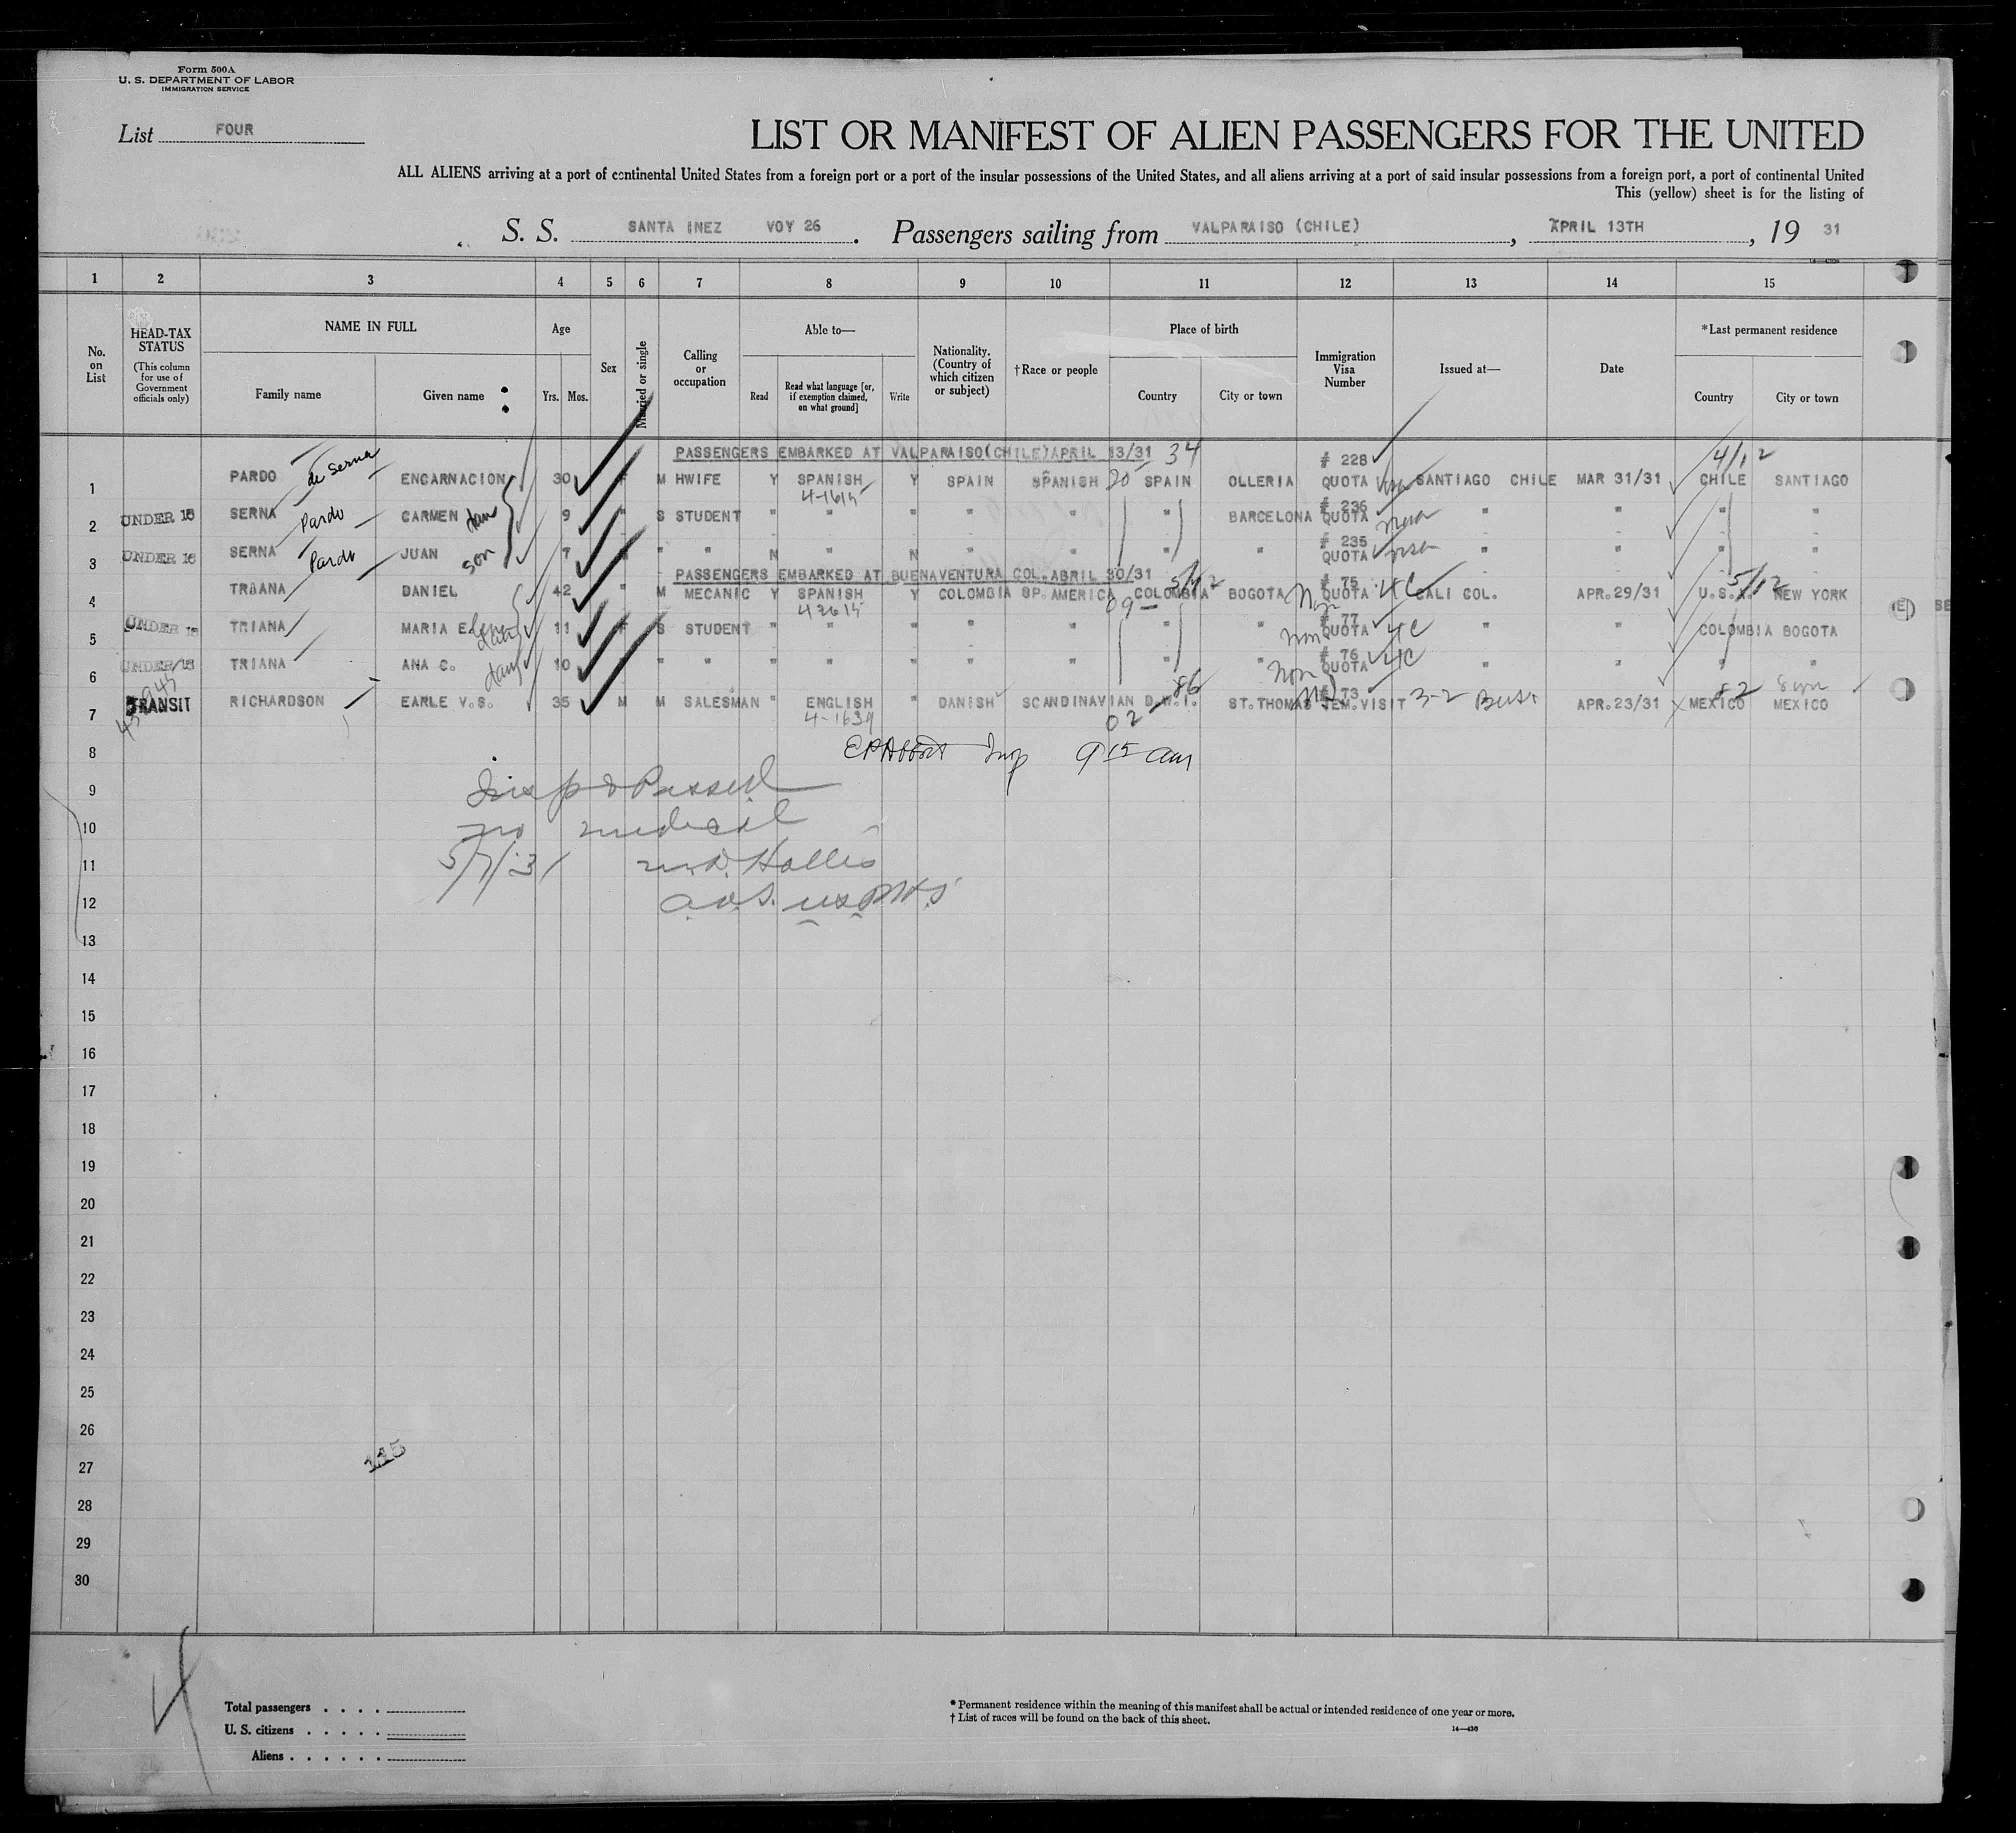 Form 500A
U. S. DEPARTMENT OF LABOR
IMMIGRATION SERVICE
List FOUR
LIST OR MANIFEST OF ALIEN PASSENGERS FOR THE UNITED
ALL ALIENS arriving at a port of continental United States from a foreign port or a port of the insular possessions of the United States, and all aliens arriving at a port of said insular possessions from a foreign port, a port of continental United
This (yellow) sheet is for the listing of
S. S. SANTA INEZ VOY 26. Passengers sailing from VALPARAISO (CHILE), APRIL 13TH, 19 31
1 2 3 4 5 6 7 8 9 10 11 12 13 14 15
No. on List
HEAD-TAX STATUS
(This column for use of Government officials only)
NAME IN FULL
Family name Given name
Age
Yrs. Mos.
Sex
Married or single
Calling or occupation
Able to—
Read
Read what language [or, if exemption claimed, on what ground]
Write
Nationality. (Country of which citizen or subject)
†Race or people
Place of birth
Country City or town
Immigration Visa Number
Issued at—
Date
*Last permanent residence
Country City or town
PASSENGERS EMBARKED AT VALPARAISO(CHILE)APRIL 13/31 34
1 PARDO de Serna ENCARNACION 30 F M HWIFE Y SPANISH Y SPAIN SPANISH 20 SPAIN OLLERIA # 228 QUOTA SANTIAGO CHILE MAR 31/31 4/12 CHILE SANTIAGO
4-1615
2 UNDER 16 SERNA Pardo CARMEN dau 9 " S STUDENT " " " " " " BARCELONA # 236 QUOTA " " " "
3 UNDER 16 SERNA Pardo JUAN son 7 M " " N " N " " " " # 235 QUOTA " " " "
PASSENGERS EMBARKED AT BUENAVENTURA COL. ABRIL 30/31
4 TRIANA DANIEL 42 " M MECANIC Y SPANISH Y COLOMBIA SP. AMERICA COLOMBIA BOGOTA Non # 75 QUOTA 4C CALI COL. APR.29/31 U.S.A. 5/12 NEW YORK
09-
5 UNDER 16 TRIANA MARIA Elena 11 F S STUDENT " " " " " " " Non # 77 QUOTA 4C " " COLOMBIA BOGOTA
6 UNDER 16 TRIANA ANA C. daug 10 " " " " " " " " " " Non # 76 QUOTA 4C " " " "
7 TRANSIT RICHARDSON EARLE V.S. 35 M M SALESMAN " ENGLISH " DANISH SCANDINAVIAN D.W.I. 86 ST.THOMAS # 73 TEM.VISIT 3-2 APR.23/31 82 MEXICO MEXICO
02
8 Insp 9 15 am
9 Insp & Passed
10 no medical
11 5/7/31 Hollis
12 U S P H S
13
14
15
16
17
18
19
20
21
22
23
24
25
26
27 115
28
29
30
4
Total passengers . . . .
U. S. citizens . . . . .
Aliens . . . . . .
* Permanent residence within the meaning of this manifest shall be actual or intended residence of one year or more.
† List of races will be found on the back of this sheet.
14—430